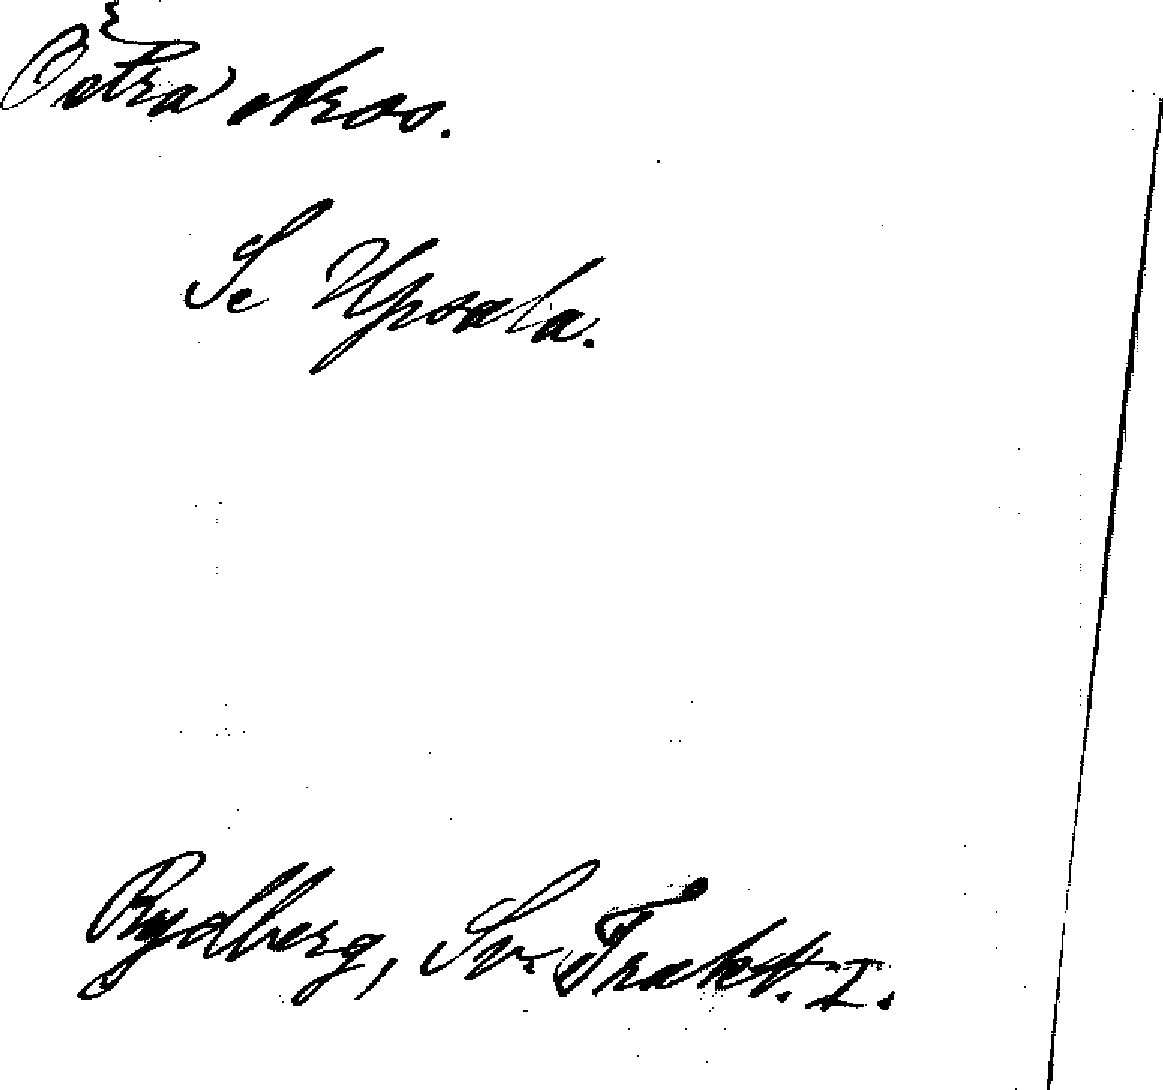 Östra Aros.
Se Upsala.
Rydberg, Sv. Trakt. I.